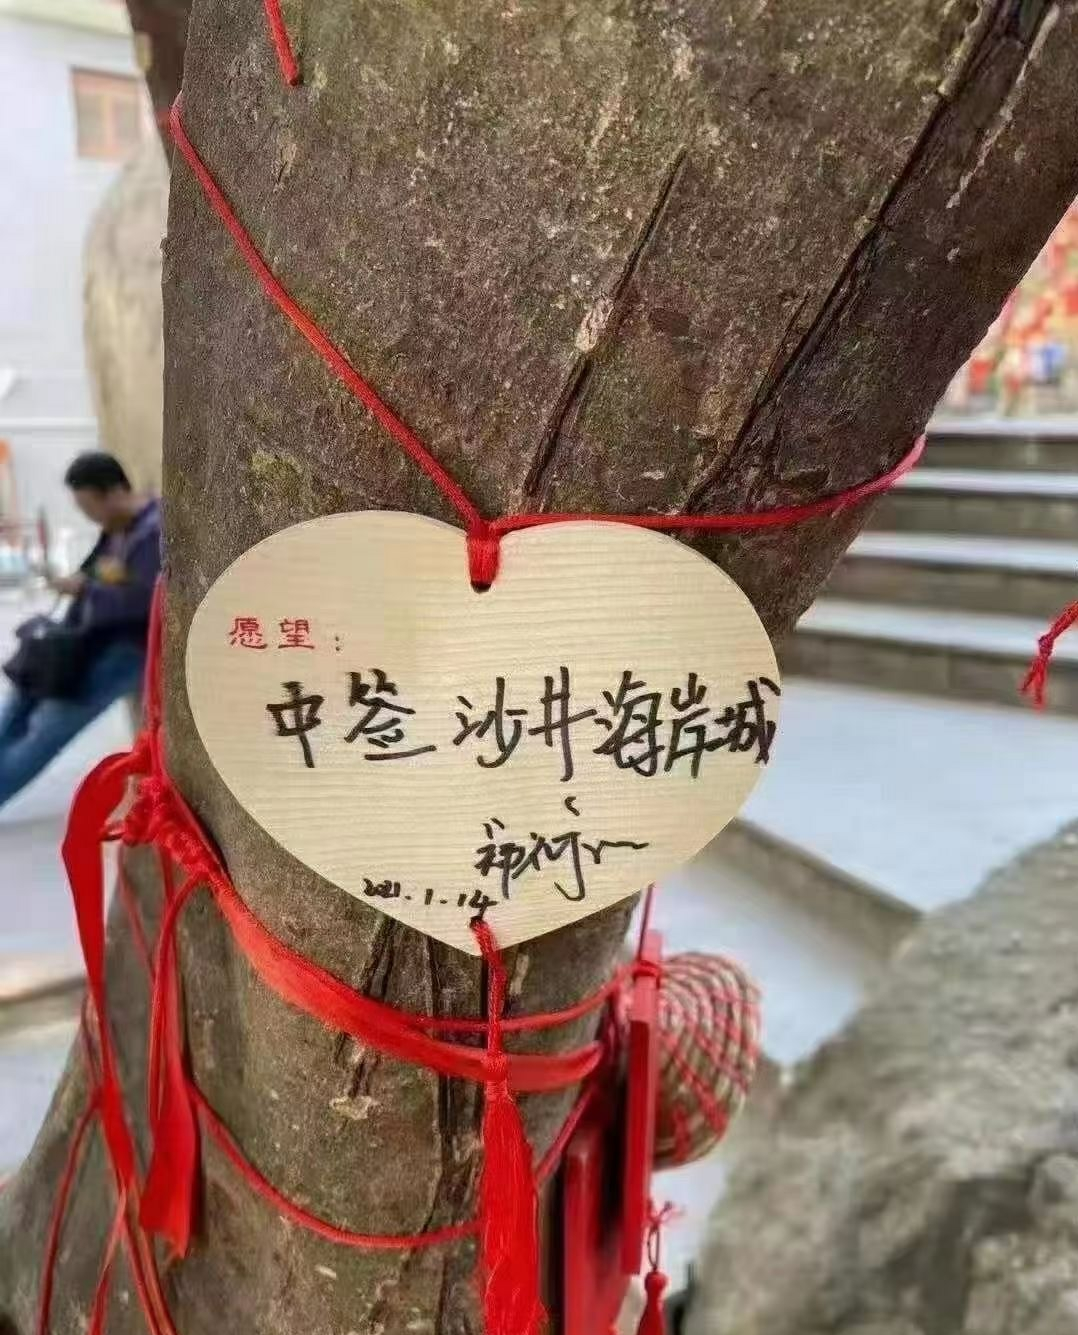 愿望：
中签 沙井海岸城
2021.1.14